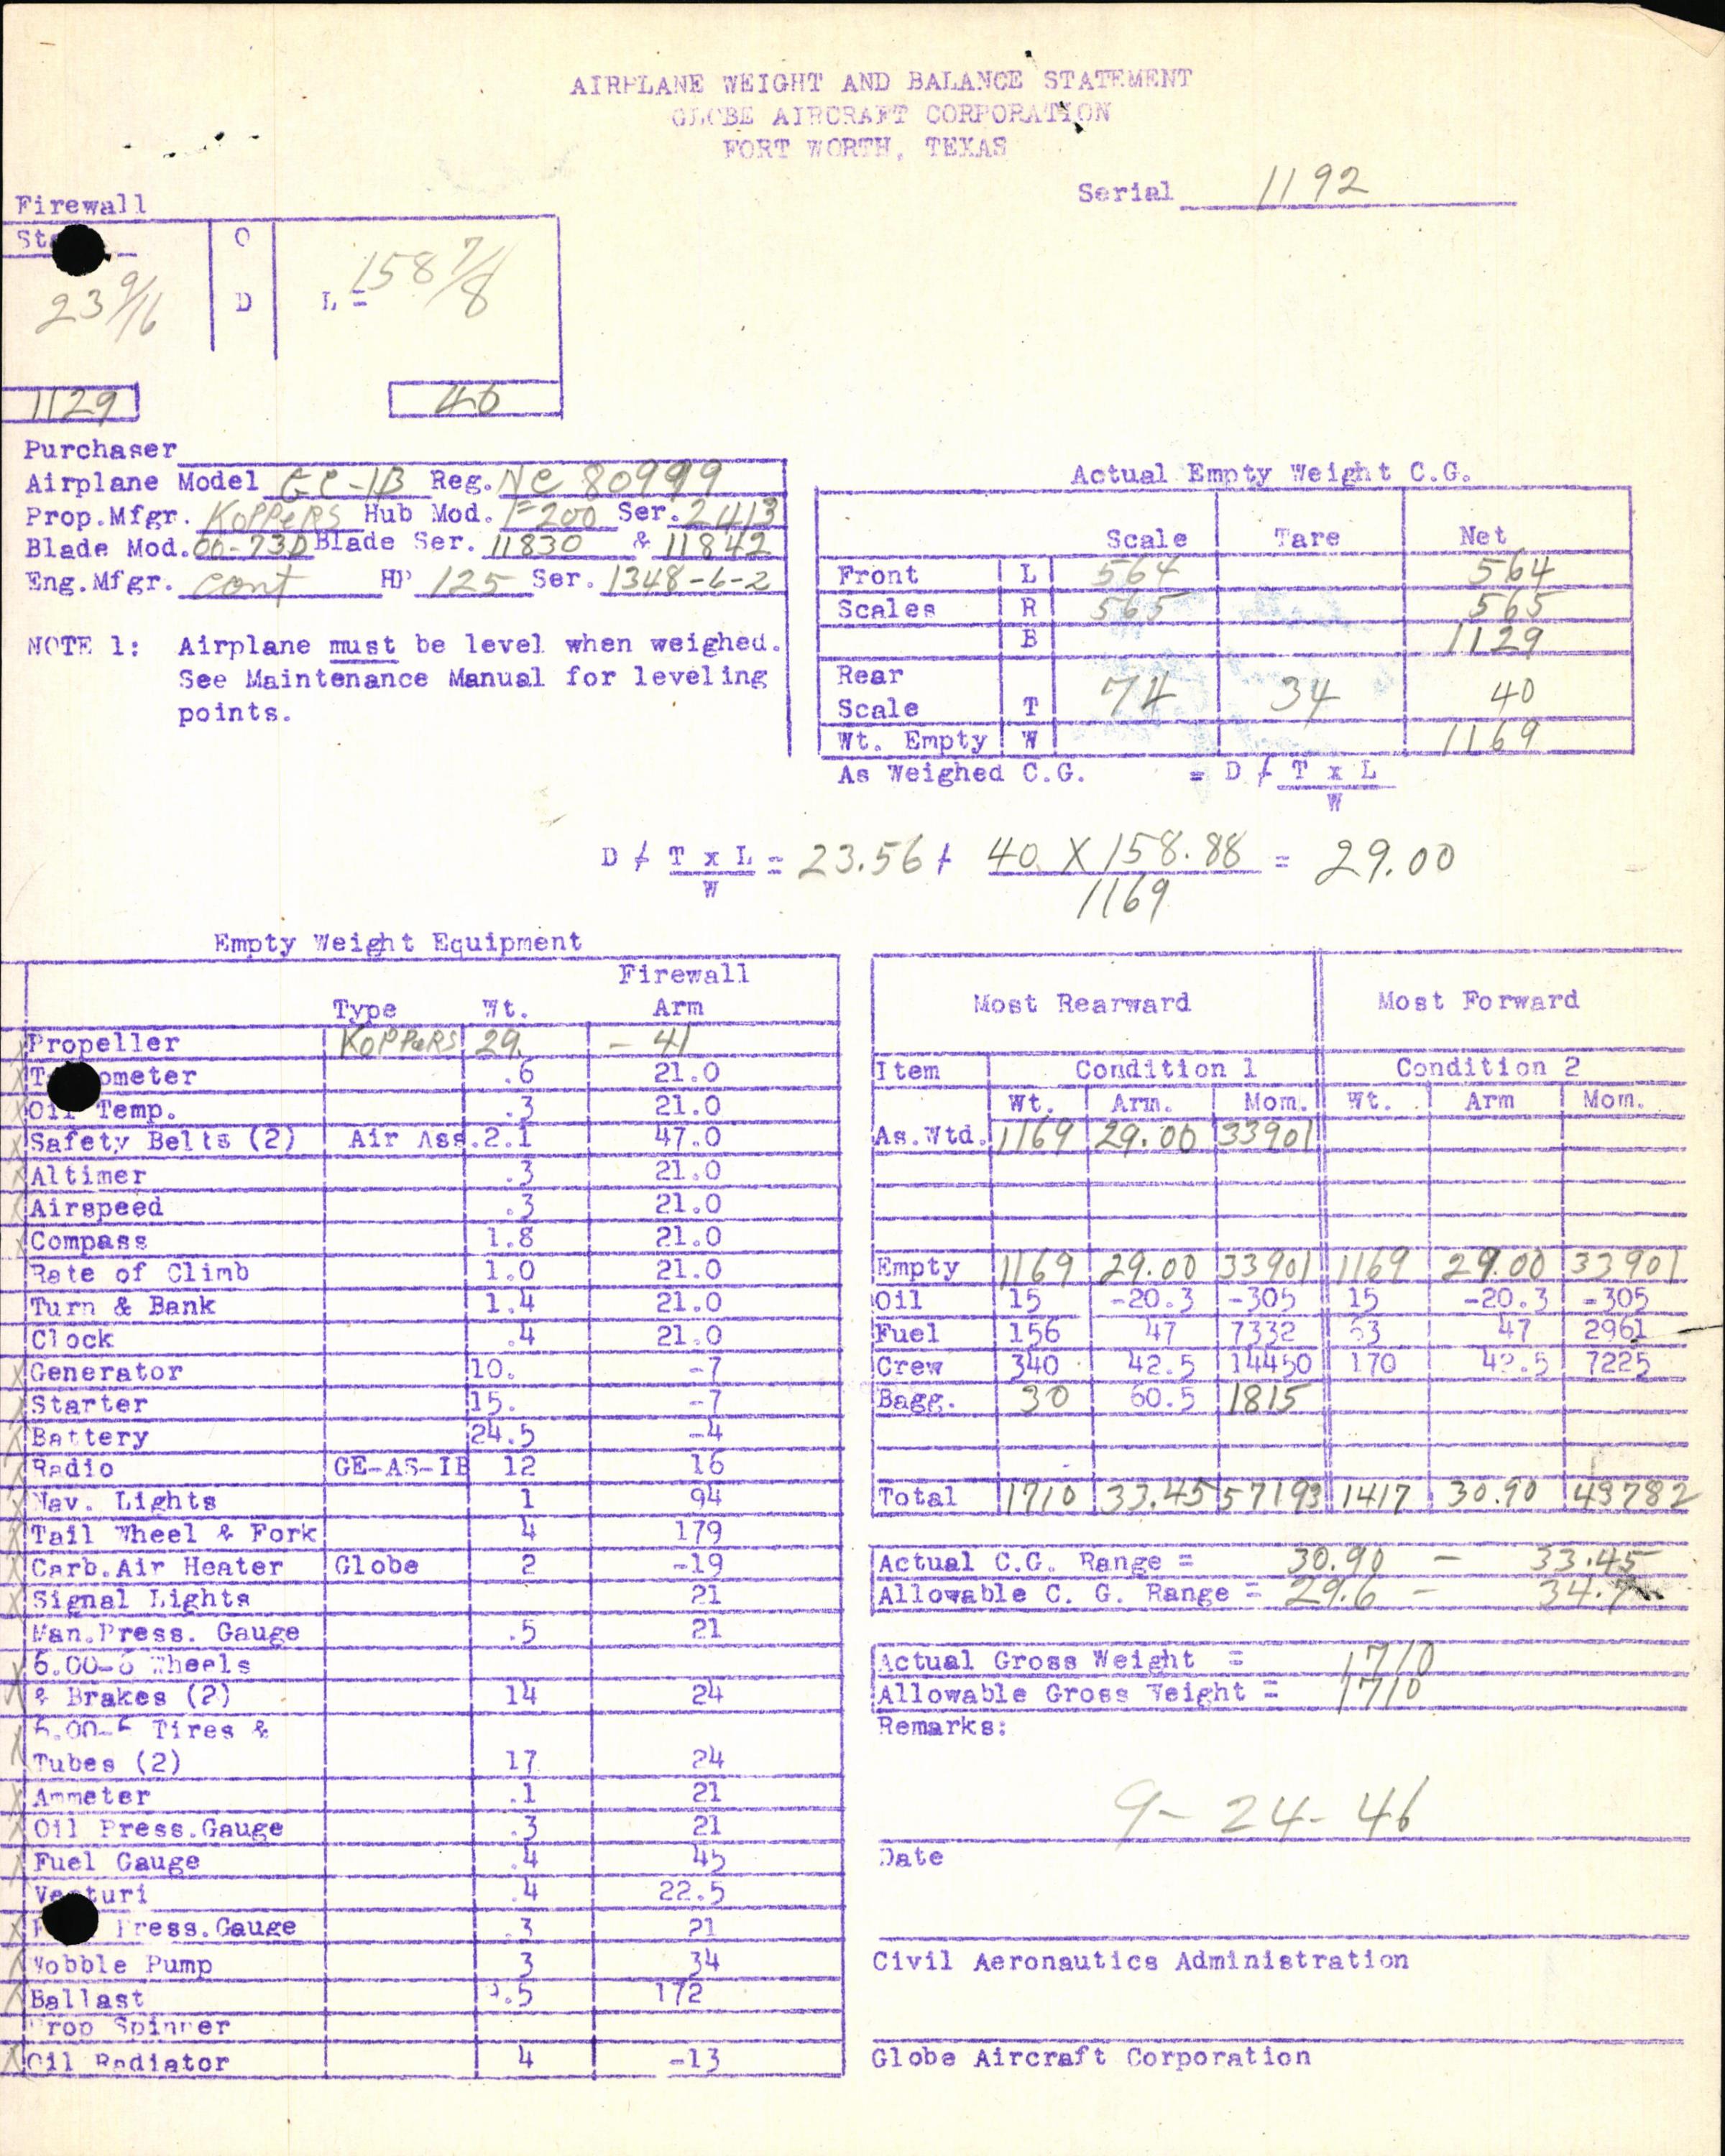 AIRPLANE WEIGHT AND BALANCE STATEMENT
GLOBE AIRCRAFT CORPORATION
FORT WORTH, TEXAS
Serial 1192
Firewall
O
23 9/16 D L = 158 7/8
1129 40
Purchaser
Airplane Model GC-1B Reg. NC 80999
Prop.Mfgr. KOPPERS Hub Mod. F-200 Ser. 2413
Blade Mod. 00-73D Blade Ser. 11830 & 11842
Eng.Mfgr. Cont HP 125 Ser. 1348-6-2
NOTE 1: Airplane must be level when weighed.
See Maintenance Manual for leveling
points.
Actual Empty Weight C.G.
Scale Tare Net
Front L 564 564
Scales R 565 565
B 1129
Rear
Scale T 74 34 40
Wt. Empty W 1169
As Weighed C.G. = D / T x L
W
D / T x L = 23.56 + 40 X 158.88 = 29.00
W 1169
Empty Weight Equipment
Firewall
Type Wt. Arm
Propeller KOPPERS 29 - 41
ometer .6 21.0
Oil Temp. .3 21.0
Safety Belts (2) Air Ass. 2.1 47.0
Altimer .3 21.0
Airspeed .3 21.0
Compass 1.8 21.0
Rate of Climb 1.0 21.0
Turn & Bank 1.4 21.0
Clock .4 21.0
Generator 10. -7
Starter 15. -7
Battery 24.5 -4
Radio GE-AS-IB 12 16
Nav. Lights 1 94
Tail Wheel & Fork 4 179
Carb.Air Heater Globe 2 -19
Signal Lights 21
Man.Press. Gauge .5 21
6.00-6 Wheels
& Brakes (2) 14 24
6.00-6 Tires &
Tubes (2) 17 24
Ammeter .1 21
Oil Press.Gauge .3 21
Fuel Gauge .4 45
Venturi .4 22.5
Press.Gauge .3 21
Wobble Pump 3 34
Ballast .5 172
Prop Spinner
Oil Radiator 4 -13
Most Rearward Most Forward
Item Condition 1 Condition 2
Wt. Arm. Mom. Wt. Arm Mom.
As.Wtd. 1169 29.00 33901
Empty 1169 29.00 33901 1169 29.00 33901
Oil 15 -20.3 -305 15 -20.3 -305
Fuel 156 47 7332 63 47 2961
Crew 340 42.5 14450 170 42.5 7225
Bagg. 30 60.5 1815
Total 1710 33.45 57193 1417 30.90 43782
Actual C.G. Range = 30.90 - 33.45
Allowable C. G. Range = 29.6 - 34.7
Actual Gross Weight = 1710
Allowable Gross Weight = 1710
Remarks:
9-24-46
Date
Civil Aeronautics Administration
Globe Aircraft Corporation